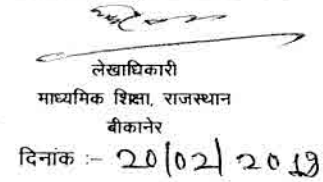 लेखाधिकारी
माध्यमिक शिक्षा, राजस्थान
बीकानेर
दिनांक :- 20/02/2019